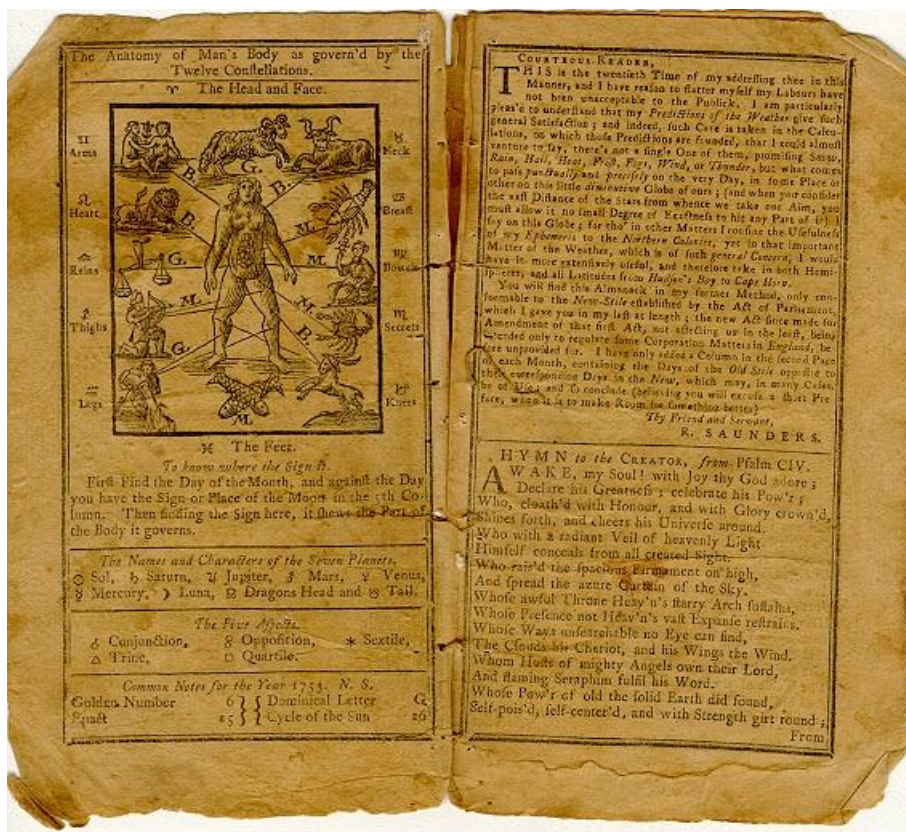 The Anatomy of Man's Body as govern'd by the
Twelve Constellations.
♈ The Head and Face.
♊
Arms
♉
Neck
♌
Heart
♋
Breast
♎
Reins
♍
Bowels
♐
Thighs
♏
Secrets
♒
Legs
♑
Knees
B.
G.
B.
B.
M.
G.
M.
M.
M.
G.
B.
M.
♓ The Feet.
To know where the Sign is.
First Find the Day of the Month, and against the Day
you have the Sign or Place of the Moon in the 5th Co-
lumn. Then finding the Sign here, it shews the Part of
the Body it governs.
The Names and Characters of the Seven Planets.
☉ Sol, ♄ Saturn, ♃ Jupiter, ♂ Mars, ♀ Venus,
☿ Mercury, ☽ Luna, ☊ Dragons Head and ☋ Tail.
The Five Aspects.
☌ Conjunction, ☍ Opposition, ⚹ Sextile,
△ Trine, □ Quartile.
Common Notes for the Year 1753. N. S.
Golden Number 6 } { Dominical Letter G
Epact 25 } { Cycle of the Sun 26
COURTEOUS READER,
THIS is the twentieth Time of my addressing thee in this
Manner, and I have reason to flatter myself my Labours have
not been unacceptable to the Publick. I am particularly
pleas'd to understand that my Predictions of the Weather give such
general Satisfaction; and indeed, such Care is taken in the Calcu-
lations, on which those Predictions are founded, that I could almost
venture to say, there's not a single One of them, promising Snow,
Rain, Hail, Heat, Frost, Fogs, Wind, or Thunder, but what comes
to pass punctually and precisely on the very Day, in some Place or
other on this little diminutive Globe of ours; (and when you consider
the vast Distance of the Stars from whence we take our Aim, you
must allow it no small Degree of Exactness to hit any Part of it) I
say on this Globe; for tho' in other Matters I confine the Usefulness
of my Ephemeris to the Northern Colonies, yet in that important
Matter of the Weather, which is of such general Concern, I would
have it more extensively useful, and therefore take in both Hemi-
spheres, and all Latitudes from Hudson's Bay to Cape Horn.
You will find this Almanack in my former Method, only con-
formable to the New-Stile established by the Act of Parliament,
which I gave you in my last at length; the new Act since made for
Amendment of that first Act, not affecting us in the least, being
intended only to regulate some Corporation Matters in England, be-
fore unprovided for. I have only added a Column in the second Page
of each Month, containing the Days of the Old Stile opposite to
their corresponding Days in the New, which may, in many Cases,
be of Use; and so conclude (believing you will excuse a short Pre-
face, when it is to make Room for something better)
Thy Friend and Servant,
R. SAUNDERS.
HYMN to the CREATOR, from Psalm CIV.
AWAKE, my Soul! with Joy thy God adore;
Declare his Greatness; celebrate his Pow'r;
Who, cloath'd with Honour, and with Glory crown'd,
Shines forth, and cheers his Universe around.
Who with a radiant Veil of heavenly Light
Himself conceals from all created Sight.
Who rais'd the spacious Firmament on high,
And spread the azure Curtain of the Sky.
Whose awful Throne Heav'n's starry Arch sustains,
Whose Presence not Heav'n's vast Expanse restrains.
Whose Ways unsearchable no Eye can find,
The Clouds his Chariot, and his Wings the Wind.
Whom Hosts of mighty Angels own their Lord,
And flaming Seraphim fulfil his Word.
Whose Pow'r of old the solid Earth did found,
Self-pois'd, self-center'd, and with Strength girt round;
From